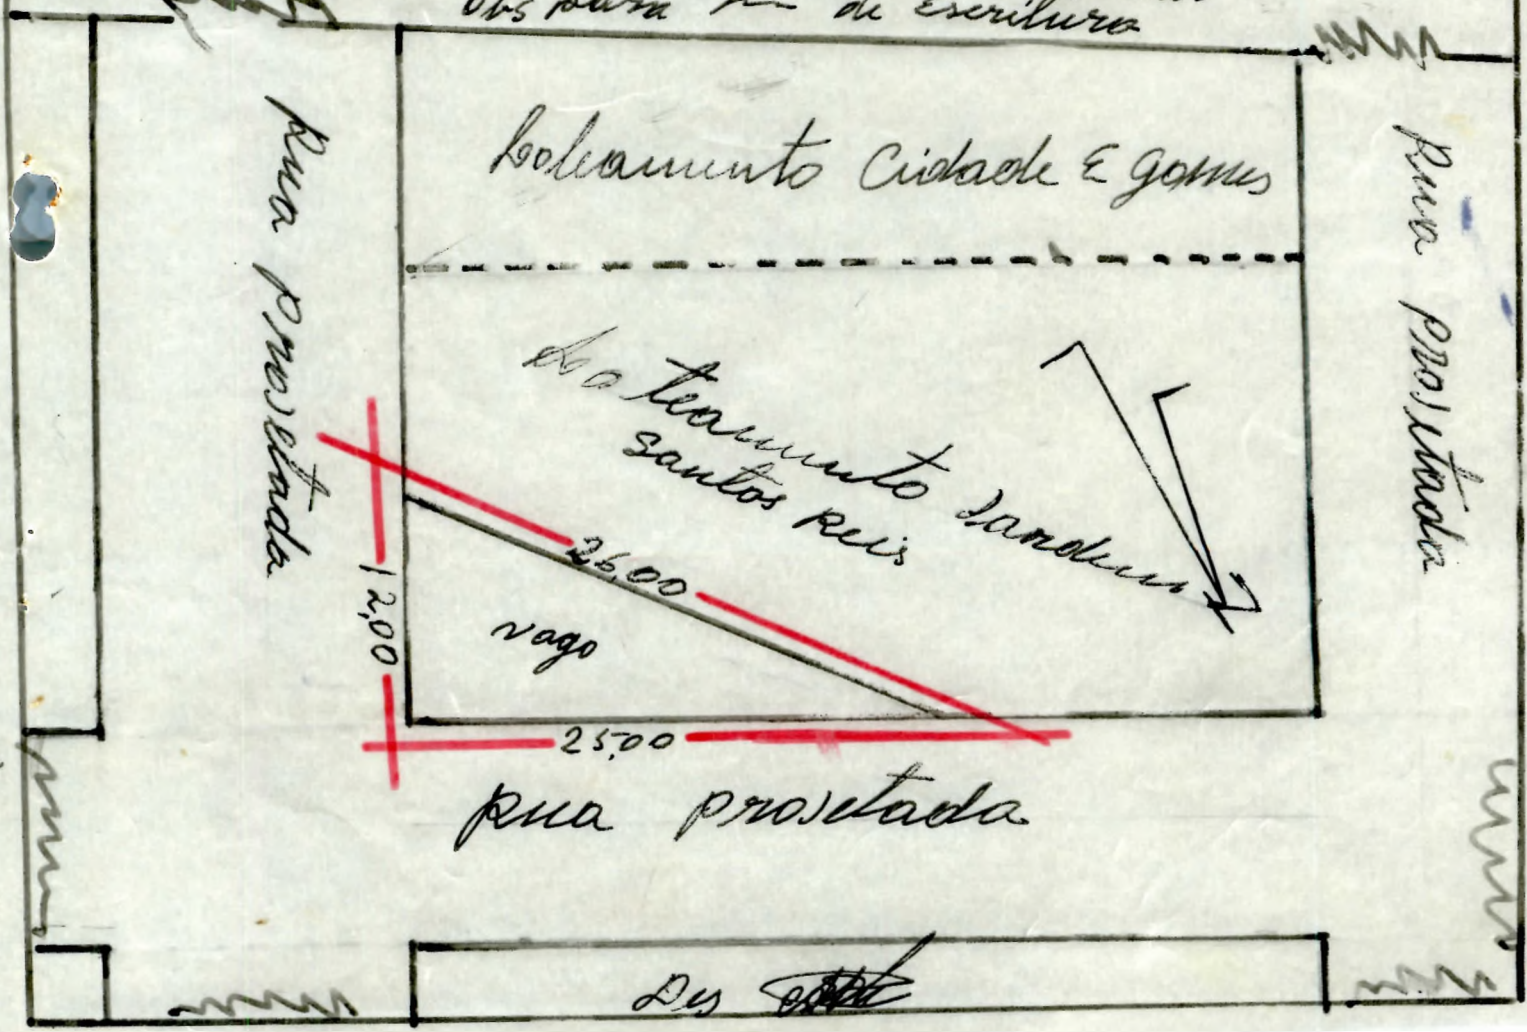 Obs para de escritura
Rua Projetada
Loteamento Cidade E Gomes
Rua Projetada
Loteamento Jardim
Santos Reis
26,00
12,00
vago
25,00
Rua Projetada
Des